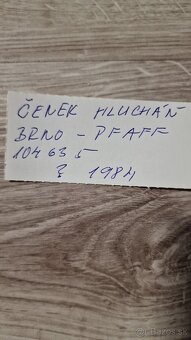 ČENEK HLUCHÁŇ
BRNO - PFAFF
104 63 5
? 1984
bazos.sk